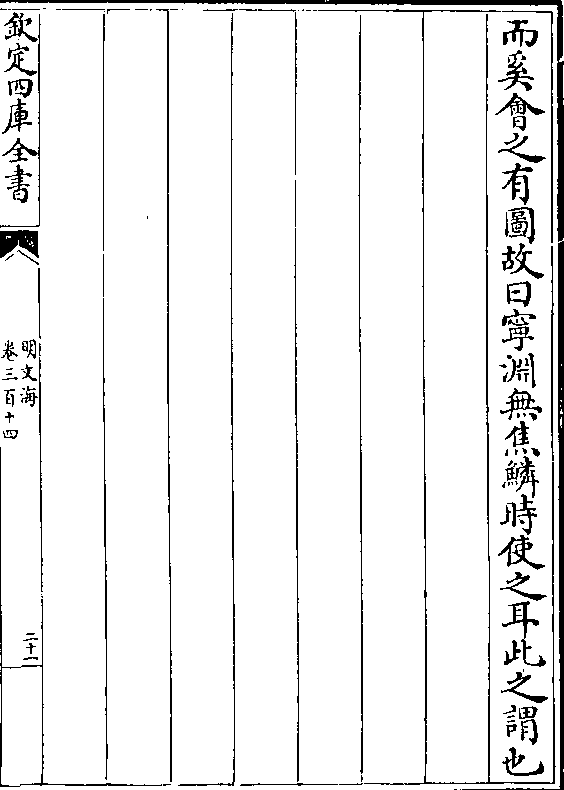 而奚會之有圖故曰寧淵無焦鱗時使之耳此之謂也
欽定四庫全書
明文海
卷三百十四
二十一